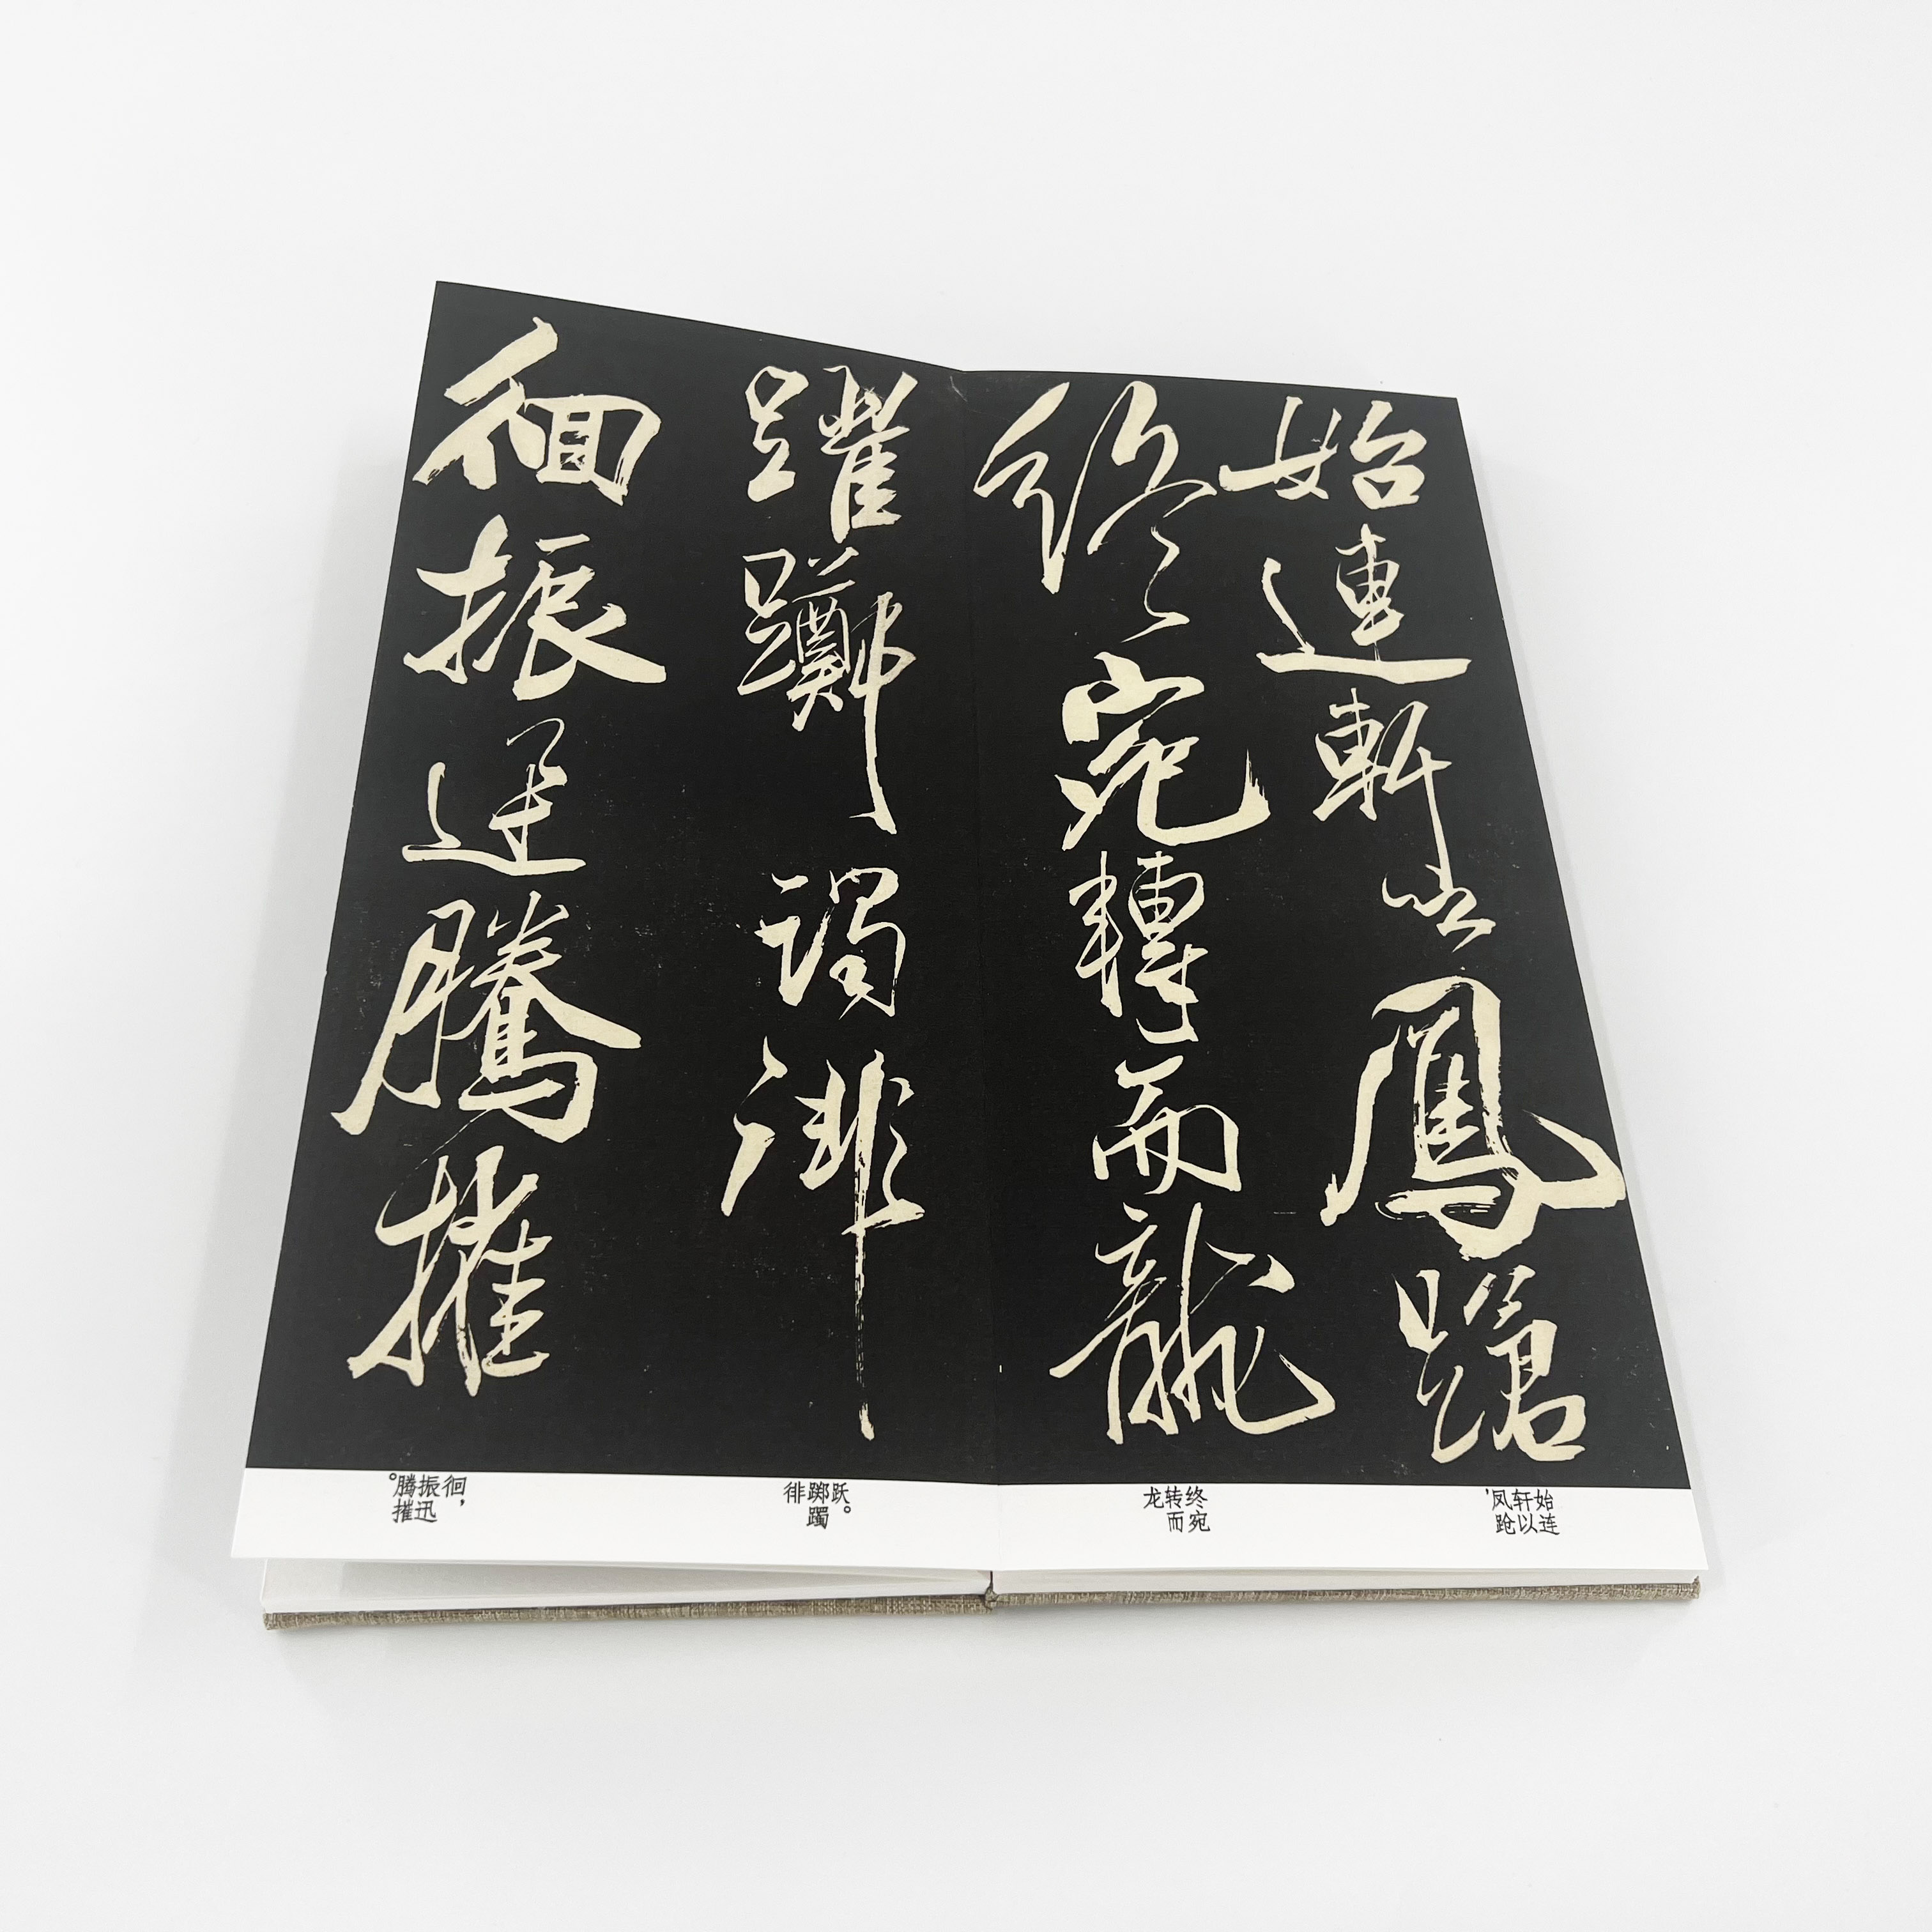 始連軒以鳳蹌
終宛轉而龍
躍躑躅徘
徊振迅騰摧
始连轩以凤跄，
终宛转而龙
跃。踯躅徘
徊，振迅腾摧。